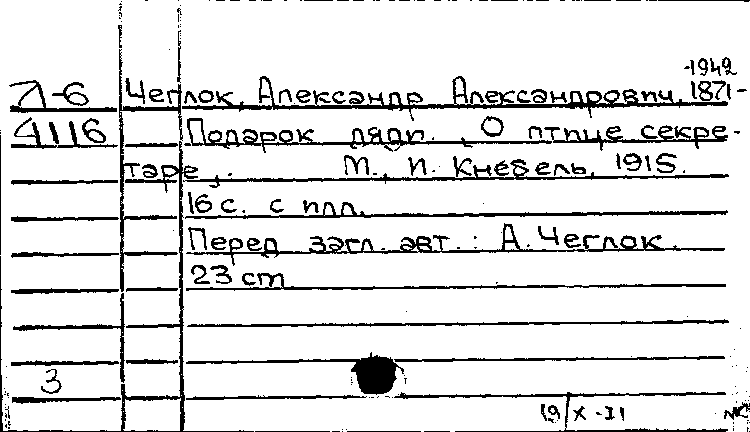 -1942
Л-6 Чеглок, Александр Александрович, 1871-
4116 Подарок дяди. О птице секре-
таре. М., И. Кнебель, 1915.
16 с. с илл.
Перед загл. авт.: А. Чеглок.
23 cm
3
19/X-71